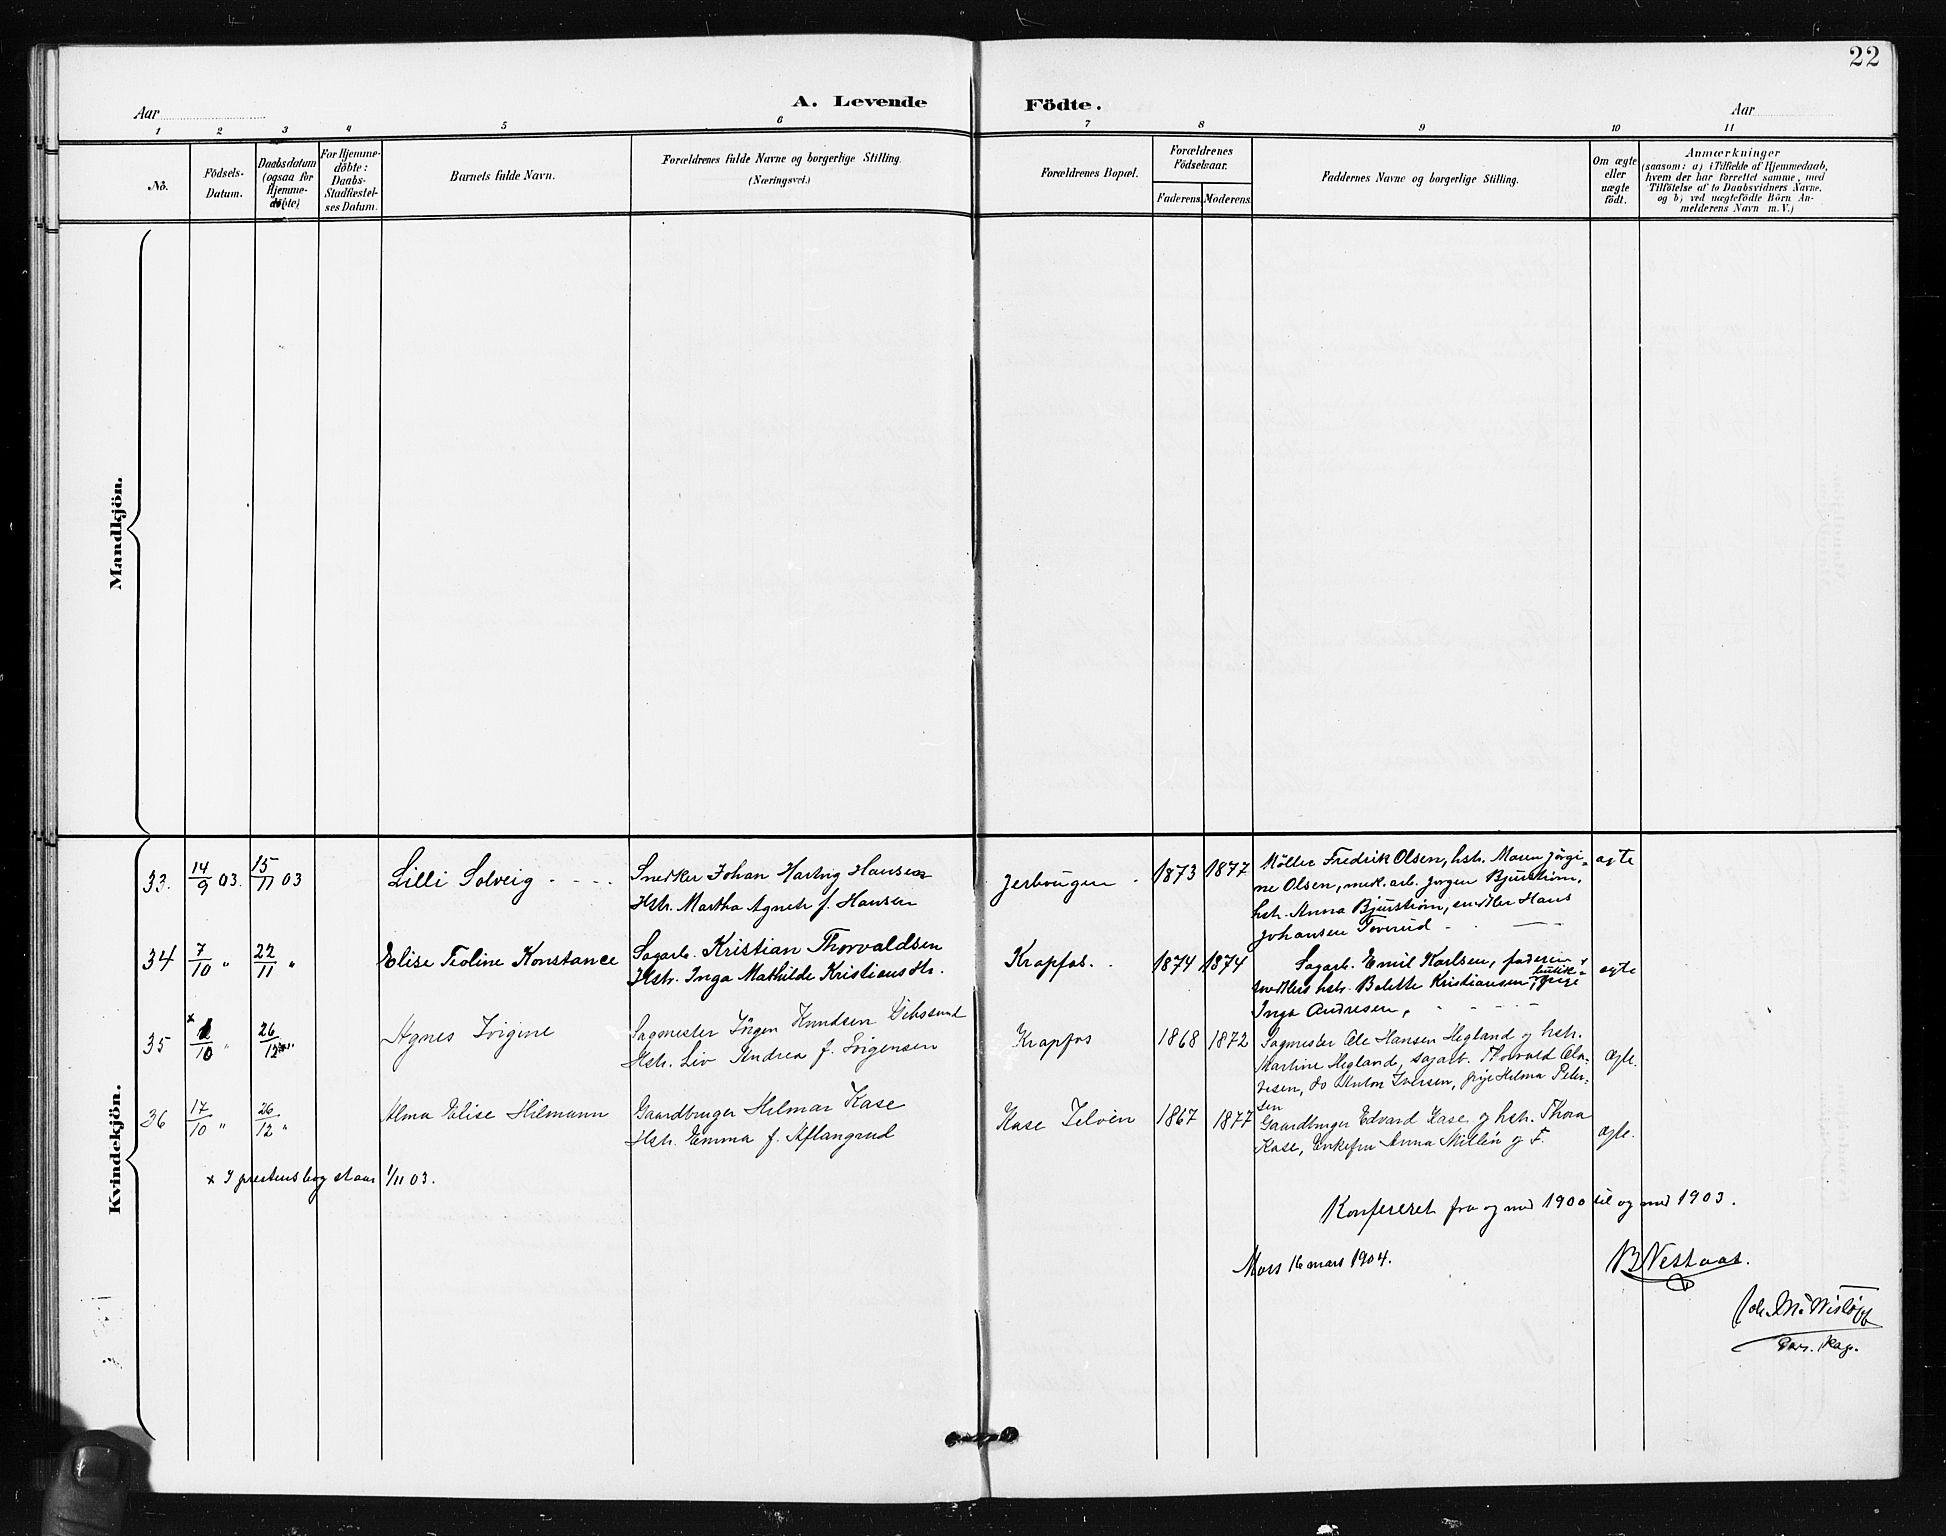 22
Aar
A. Levende Födte.
Aar
1 2 3 4 5 6 7 8 9 10 11
No.
Födsels-Datum.
Daabsdatum (ogsaa for Hjemme-döbte)
For Hjemme-döbte: Daabs-Stadfæstel-ses Datum.
Barnets fulde Navn.
Forældrenes fulde Navne og borgerlige Stilling. (Næringsvei.)
Forældrenes Bopæl.
Forældrenes Födselsaar.
Faderens. Moderens.
Faddernes Navne og borgerlige Stilling.
Om ægte eller uægte födt.
Anmærkninger
(saasom: a) i Tilfælde af Hjemmedaab, hvem der har forrettet samme, med Tilföielse af to Daabsvidners Navne, og b) ved uægtefödte Börn An-melderens Navn m. V.)
Mandkjön.
Kvindekjön.
33. 14/9 03. 15/11 03 Lilli Solveig
Snedker Johan Hartvig Hansen
Hstr. Martha Agnete f. Hansen
1873 1877
Møller Fredrik Olsen, hstr. Maren Jörgi-
ne Olsen, mek. arb. Jørgen Bjurstrøm,
hstr. Anna Bjurstrøm, snedker Hans
Johansen
ægte
34 7/10 " 22/11 " Elise Teoline Konstance
Sagarb. Kristian Thorvaldsen
Hstr. Inga Mathilde Kristiansdtr.
Krapfos. 1874 1874
Sagarb. Emil Karlsen, faderen,
snedkers hstr. Bolette Kristiansen, butik-pige
Inga Andresen,
ægte
35 x 1/10 " 26/12 " Agnes
Sagmester Jörgen Knudsen
Hstr. Liv Andrea f. Jörgensen
Krapfos 1868 1872
Sagmester Ole Hansen Hegland og hstr.
Martine Hegland, sagarb. Thorvald Ola-
vesen, do Anton Iversen, pige Helma Peter-
sen
ægte.
36 17/10 " 26/12 " Alma Elise Hilmann
Gaardbruger Hilmar Kase
Hstr. Emma f. Aflangrud
Kase Jeløen 1867 1877
Gaardbruger Edvard Kase og hstr. Thora
Kase, Enkefru Anna Millén og F.
ægte.
x I prestens bog staar 1/11 03.
Konfereret fra og med 1900 til og med 1903.
Moss 16 mars 1904.
B Nestaas.
Joh. M. Wisløff
Pers. Kap.